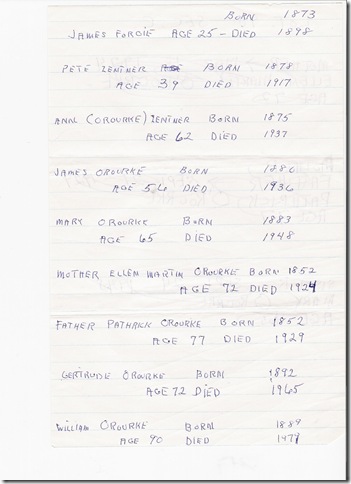 BORN 1873
JAMES FORGIE AGE 25 - DIED 1898
PETE ZENTNER BORN 1878
AGE 39 DIED 1917
ANN (OROURKE) ZENTNER BORN 1875
AGE 62 DIED 1937
JAMES OROURKE BORN 1880
AGE 56 DIED 1936
MARY OROURKE BORN 1883
AGE 65 DIED 1948
MOTHER ELLEN MARTIN OROURKE BORN 1852
AGE 72 DIED 1924
FATHER PATHRICK OROURKE BORN 1852
AGE 77 DIED 1929
GERTRUDE OROURKE BORN 1892
AGE 72 DIED 1965
WILLIAM OROURKE BORN 1889
AGE 90 DIED 1979